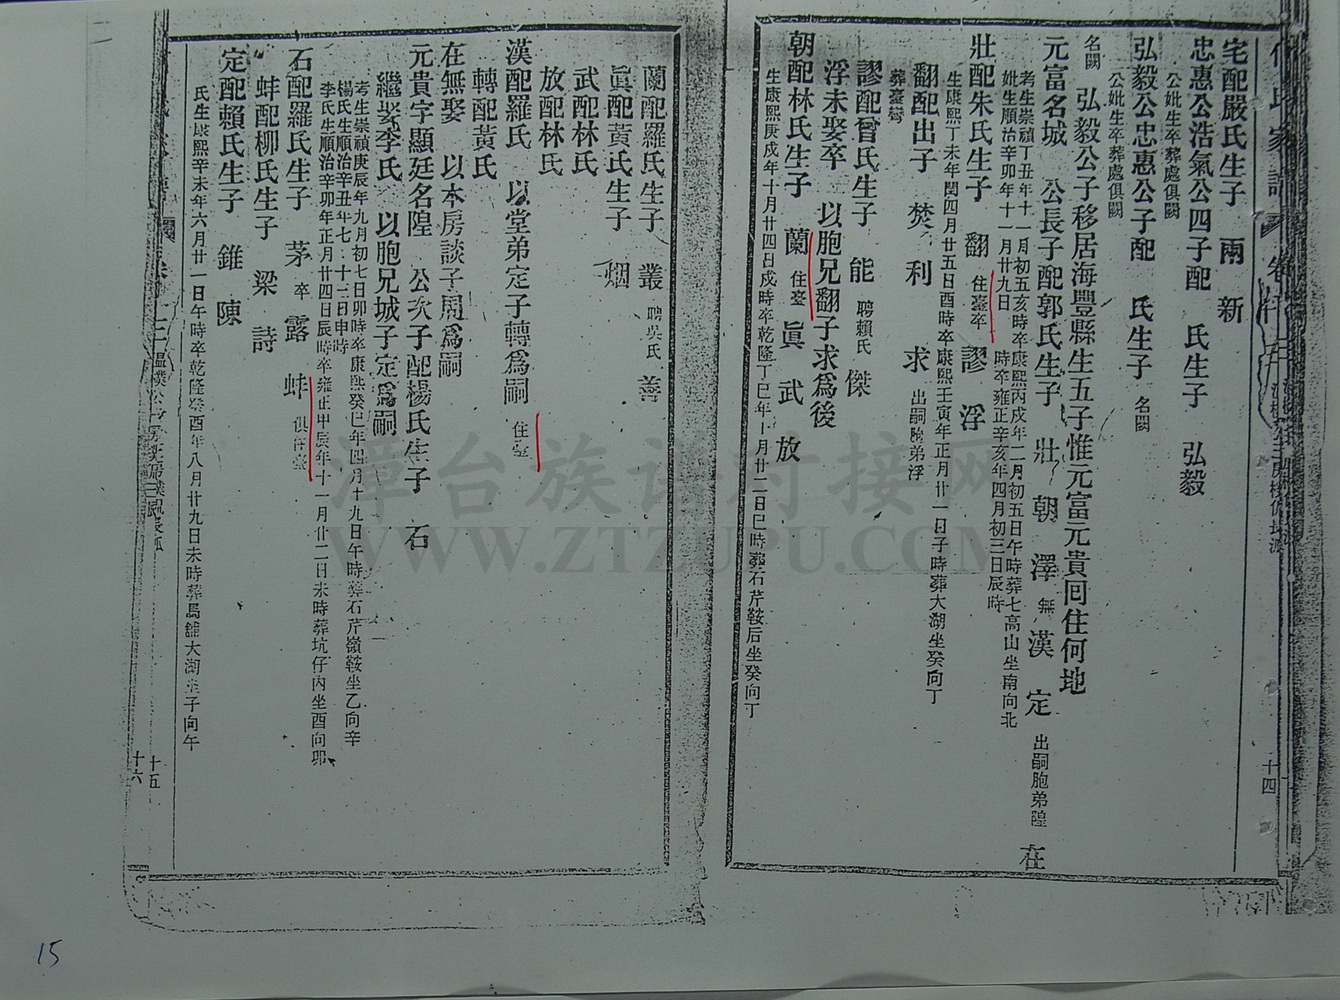 宅配嚴氏生子 兩 新
忠惠公浩氣公四子配 氏生子 弘毅
公妣生卒葬處俱闕
弘毅公忠惠公子配 氏生子 名闕
公妣生卒葬處俱闕
名闕 弘毅公子移居海豐縣生五子惟元富元貴回住何地
元富名城 公長子配郭氏生子 壯 朝 澤 無 漢 定 出嗣胞弟隍 在
考生崇禎丁丑年十一月初五亥時卒康熙丙戌年二月初五日午時葬七高山坐南向北
妣生順治辛卯年十一月廿九日 時卒雍正辛亥年四月初三日辰時
壯配朱氏生子 翻 住臺卒 謬 浮
生康熙丁未年閏四月廿五日酉時卒康熙壬寅年正月廿一日子時葬大湖坐癸向丁
翻配出子 焚 利 求 出嗣胞弟浮
葬臺灣
謬配曾氏生子 能 聘賴氏 傑
浮未娶卒 以胞兄翻子求為後
朝配林氏生子 蘭 住臺 眞 武 放
生康熙庚戌年十月廿四日戌時卒乾隆丁巳年十月廿二日巳時葬石芹鞍后坐癸向丁
十四
蘭配羅氏生子 叢 聘吳氏 善
眞配黃氏生子 烟
武配林氏
放配林氏
漢配羅氏 以堂弟定子轉為嗣 住臺
轉配黃氏
在無娶 以本房談子周為嗣
元貴字顯廷名隍 公次子配楊氏生子 石
繼娶李氏 以胞兄城子定為嗣
考生崇禎庚辰年九月初七日卯時卒康熙癸巳年四月十九日午時葬石芹嶺鞍坐乙向辛
楊氏生順治辛丑年七 十二日申時
李氏生順治辛卯年正月廿四日辰時卒雍正甲辰年十一月廿二日未時葬坑仔內坐酉向卯
石配羅氏生子 茅 卒 露 蚌 俱住臺
蚌配柳氏生子 梁 詩
定配賴氏生子 錐 陳
氏生康熙辛未年六月廿一日午時卒乾隆癸酉年八月廿九日未時葬馬舖大湖坐子向午
十五
十六
漳台族谱对接网
WWW.ZTZUPU.COM
15